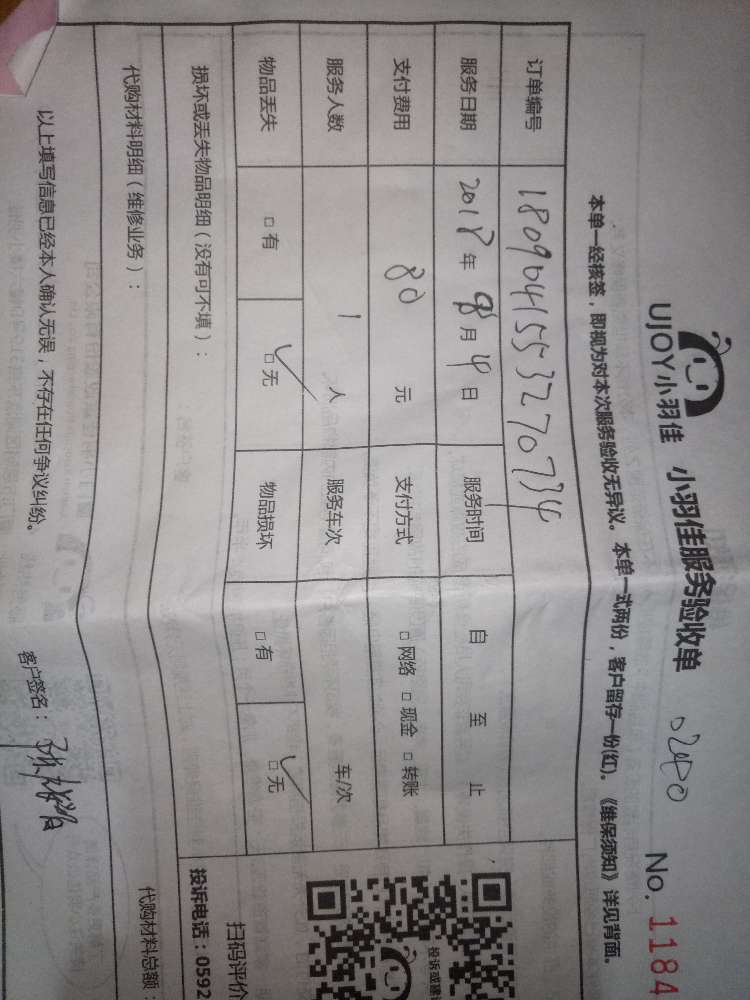 UJOY小羽佳 小羽佳服务验收单 0240 No. 1184
本单一经核签，即视为对本次服务验收无异议。本单一式两份，客户留存一份(红)。《维保须知》详见背面。
订单编号 1809041553270734
服务日期 2018年 9月 4日 服务时间 自 至 止
支付费用 80 元 支付方式 □网络 □现金 □转账
服务人数 1 人 服务车次 车/次
物品丢失 □有 □无 物品损坏 □有 □无
损坏或丢失物品明细（没有可不填）：
扫码评价
投诉电话：0592
代购材料明细（维修业务）：
代购材料总额：
以上填写信息已经本人确认无误，不存在任何争议纠纷。 客户签名：